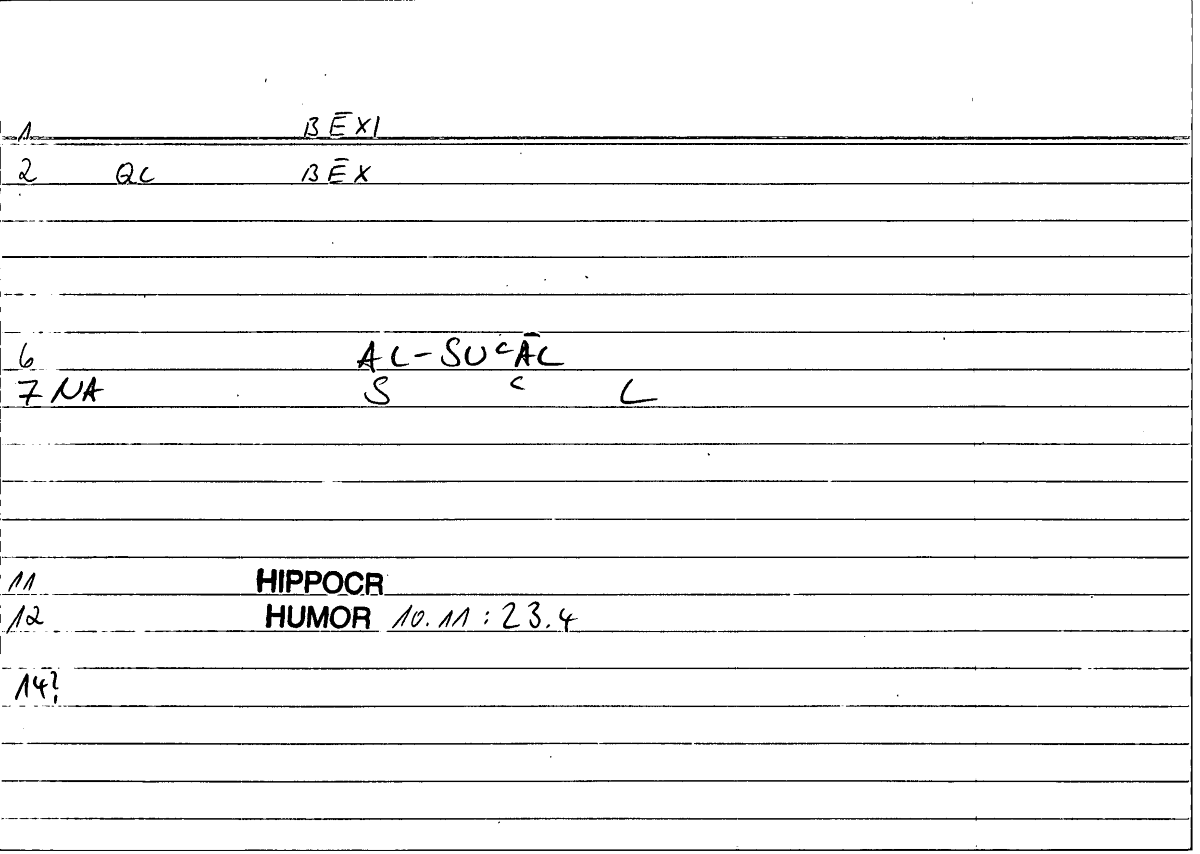 1 BĒXI
2 QC BĒX
6 AL-SUᶜĀL
7 NA S ᶜ L
11 HIPPOCR
12 HUMOR 10.11 : 23.4
14?